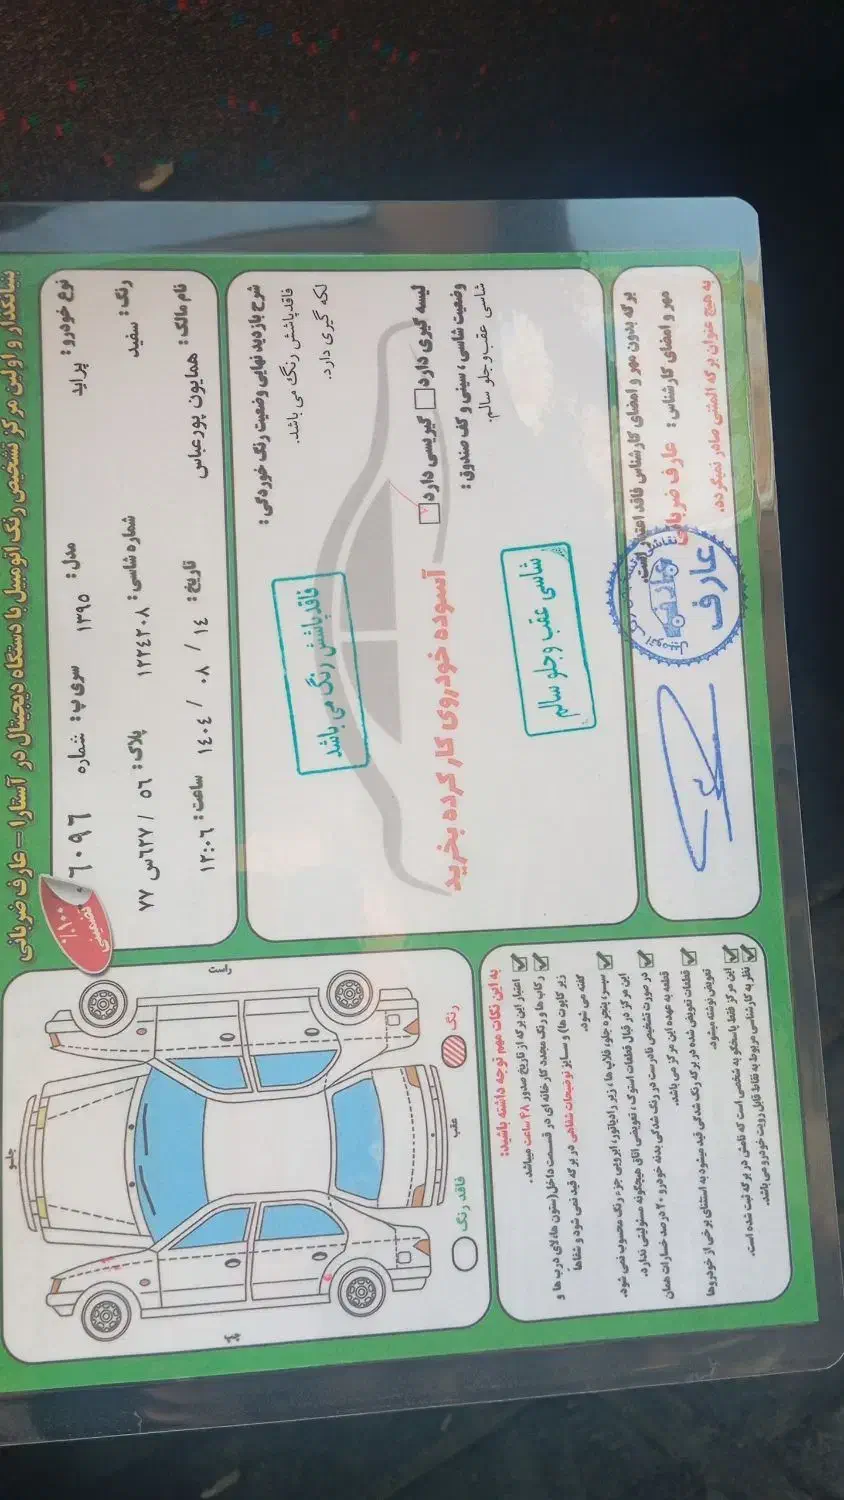 بنیانگذار و اولین مرکز تشخیص رنگ اتومبیل با دستگاه دیجیتال در آستارا - عارف ضربانی
نوع خودرو: پراید
مدل: ۱۳۹۵
سری پ: شماره
۰۶۰۹۶
رنگ: سفید
شماره شاسی: ۱۲۲۴۲۰۸
پلاک: ۵۶ / ۶۲۷س ۷۷
نام مالک: همایون پورعباس
تاریخ: ۱۴ / ۰۸ / ۱۴۰۴
ساعت: ۱۲:۰۶
۱۰۰٪
تضمینی
شرح بازدید نهایی وضعیت رنگ خوردگی:
فاقد پاشش رنگ می باشد.
لکه گیری دارد.
فاقد پاشش رنگ می باشد
لیسه گیری دارد
گیریسی دارد
آسوده خودروی کارکرده بخرید
وضعیت شاسی، سینی و کف صندوق:
شاسی عقب و جلو سالم.
شاسی عقب و جلو سالم
برگه بدون مهر و امضای کارشناس فاقد اعتبار است.
مهر و امضای کارشناس: عارف ضربانی
به هیچ عنوان برگه المثنی صادر نمیگردد.
عارف
راست
جلو
عقب
چپ
رنگ
فاقد رنگ
به این نکات مهم توجه داشته باشید:
اعتبار این برگه از تاریخ صدور ۴۸ ساعت میباشد.
رکاب ها و رنگ مجدد کارخانه ای در قسمت داخل (ستون ها، لای درب ها و
زیر کاپوت ها) و سایز توضیحات شفاهی در برگه قید نمی شود و شفاهاً
گفته می شود.
سپر، پنجره جلو، قلاب ها، زیر رادیاتور، ابرویی جزء رنگ محسوب نمی شود.
این مرکز در قبال قطعات استوک، تعویض اتاق هیچگونه مسئولیتی ندارد.
در صورت تشخیص نادرست در رنگ شدگی بدنه خودرو ۲۰ درصد خسارات همان
قطعه به عهده این مرکز می باشد.
قطعات تعویض شده در برگه رنگ شدگی قید میشود به استثنای برخی از خودروها
تعویض نوشته میشود.
این مرکز فقط پاسخگو به شخصی است که نامش در برگه ثبت شده است.
نظر به کارشناسی مربوط به نقاط قابل رویت خودرو می باشد.